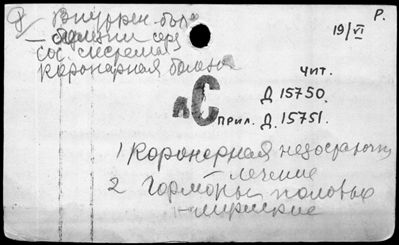 Внутрен. бол.
— болезни серд
сос. системы
коронарная болезнь
19/VI
Р.
чит.
Д 15750.
лС
Прил. Д. 15751.
1 Коронарная недостаточн
лечение
2 Гормоны половые